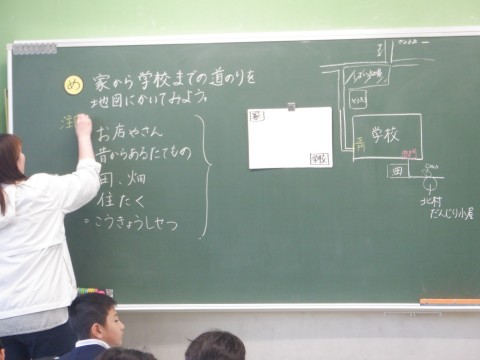 め
家から学校までの道のりを
地図にかいてみよう。
お店やさん
昔からあるたてもの
田、畑
住たく
こうきょうしせつ
家
学校
学校
田
北村
だんじり小屋